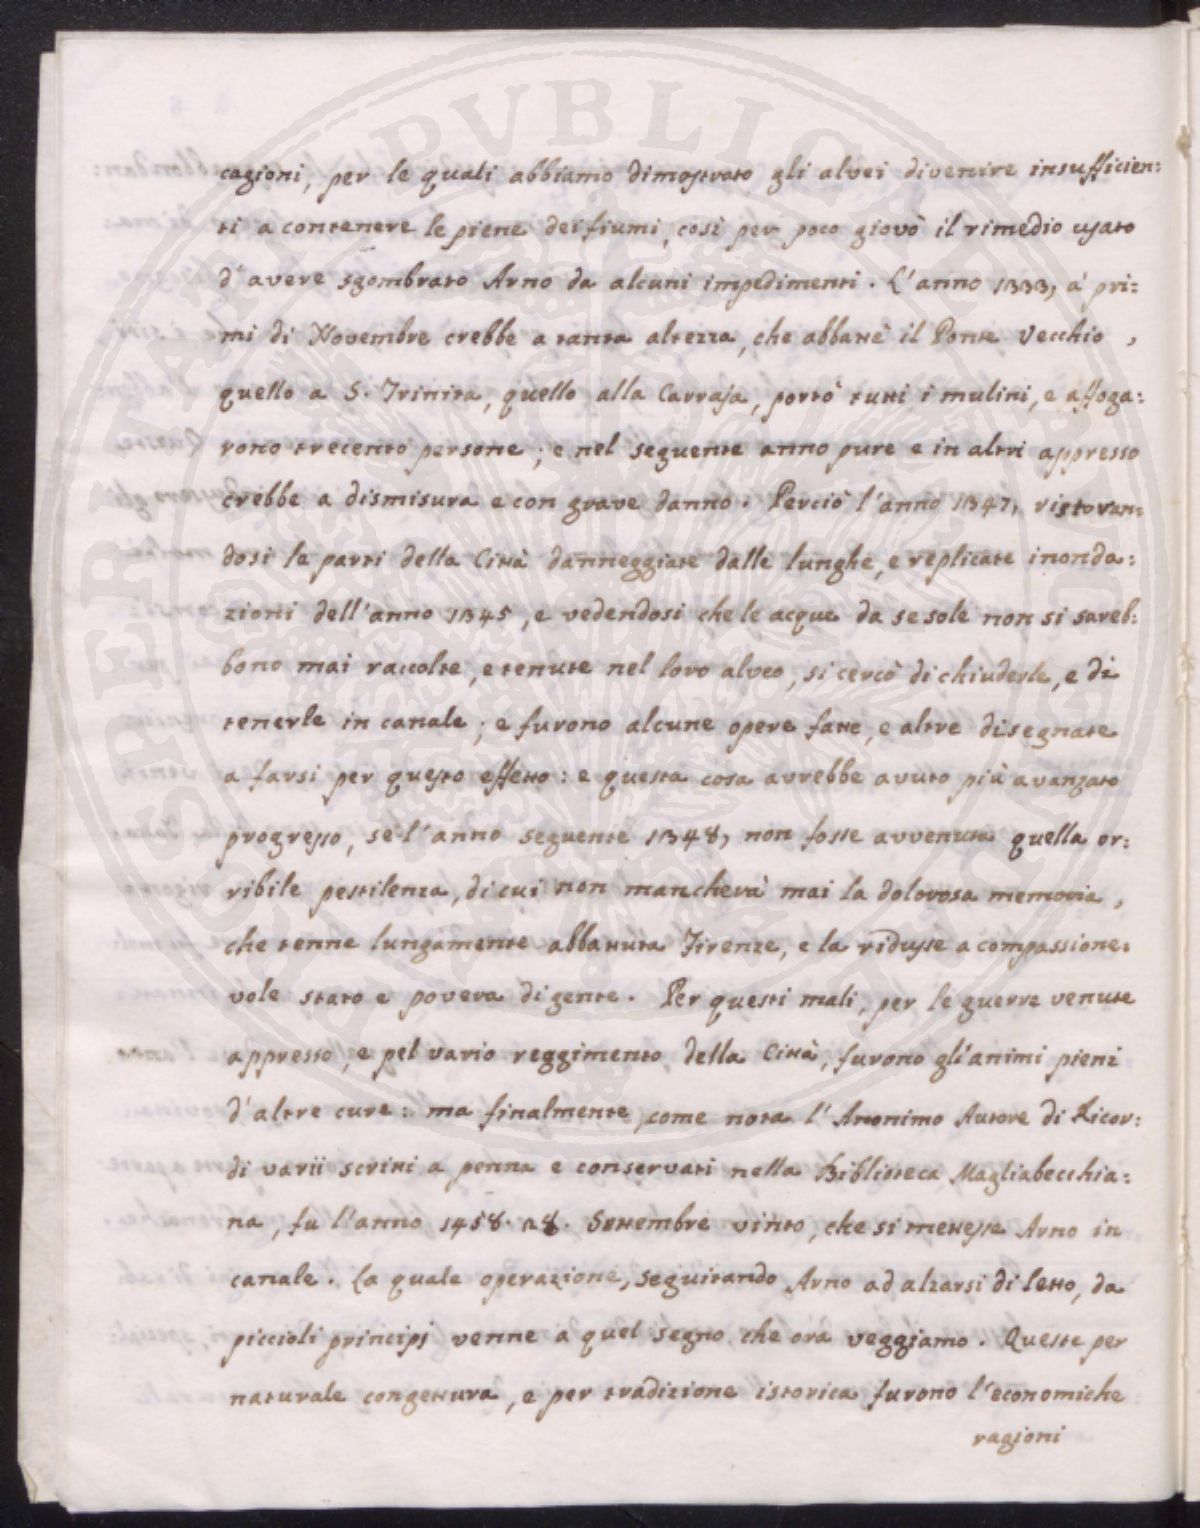 cagioni, per le quali abbiamo dimostrato gli alvei divenire insufficien:
ti a contenere le piene dei fiumi, così per poco giovò il rimedio usato
d'avere sgombrato Arno da alcuni impedimenti. L'anno 1333, a' pri:
mi di Novembre crebbe a tanta altezza, che abbattè il Ponte Vecchio,
quello a S. Trinita, quello alla Carraja, portò tutti i mulini, e affoga:
rono trecento persone; e nel seguente anno pure e in altri appresso
crebbe a dismisura e con grave danno. Perciò l'anno 1347, ristoran:
dosi le parti della Città danneggiate dalle lunghe, e replicate inonda:
zioni dell'anno 1345, e vedendosi che le acque da se sole non si sareb:
bono mai raccolte, e tenute nel loro alveo, si cercò di chiuderle, e di
tenerle in canale; e furono alcune opere fatte, e altre disegnate
a farsi per questo effetto: e questa cosa avrebbe avuto più avanzato
progresso, se l'anno seguente 1348, non fosse avvenuta quella or:
ribile pestilenza, di cui non mancherà mai la dolorosa memoria,
che tenne lungamente abbattuta Firenze, e la ridusse a compassione:
vole stato e povera di gente. Per questi mali, per le guerre venute
appresso, e pel vario reggimento della Città, furono gli animi pieni
d'altre cure: ma finalmente, come nota l'Anonimo Autore di Ricor:
di varii scritti a penna e conservati nella Biblioteca Magliabecchia:
na, fu l'anno 1458. 28. Settembre vinto, che si mettesse Arno in
canale. La quale operazione, seguitando Arno ad alzarsi di letto, da
piccioli principj venne a quel segno che ora veggiamo. Queste per
naturale congettura, e per tradizione istorica furono l'economiche
ragioni
SPERTARI PVBLICAE